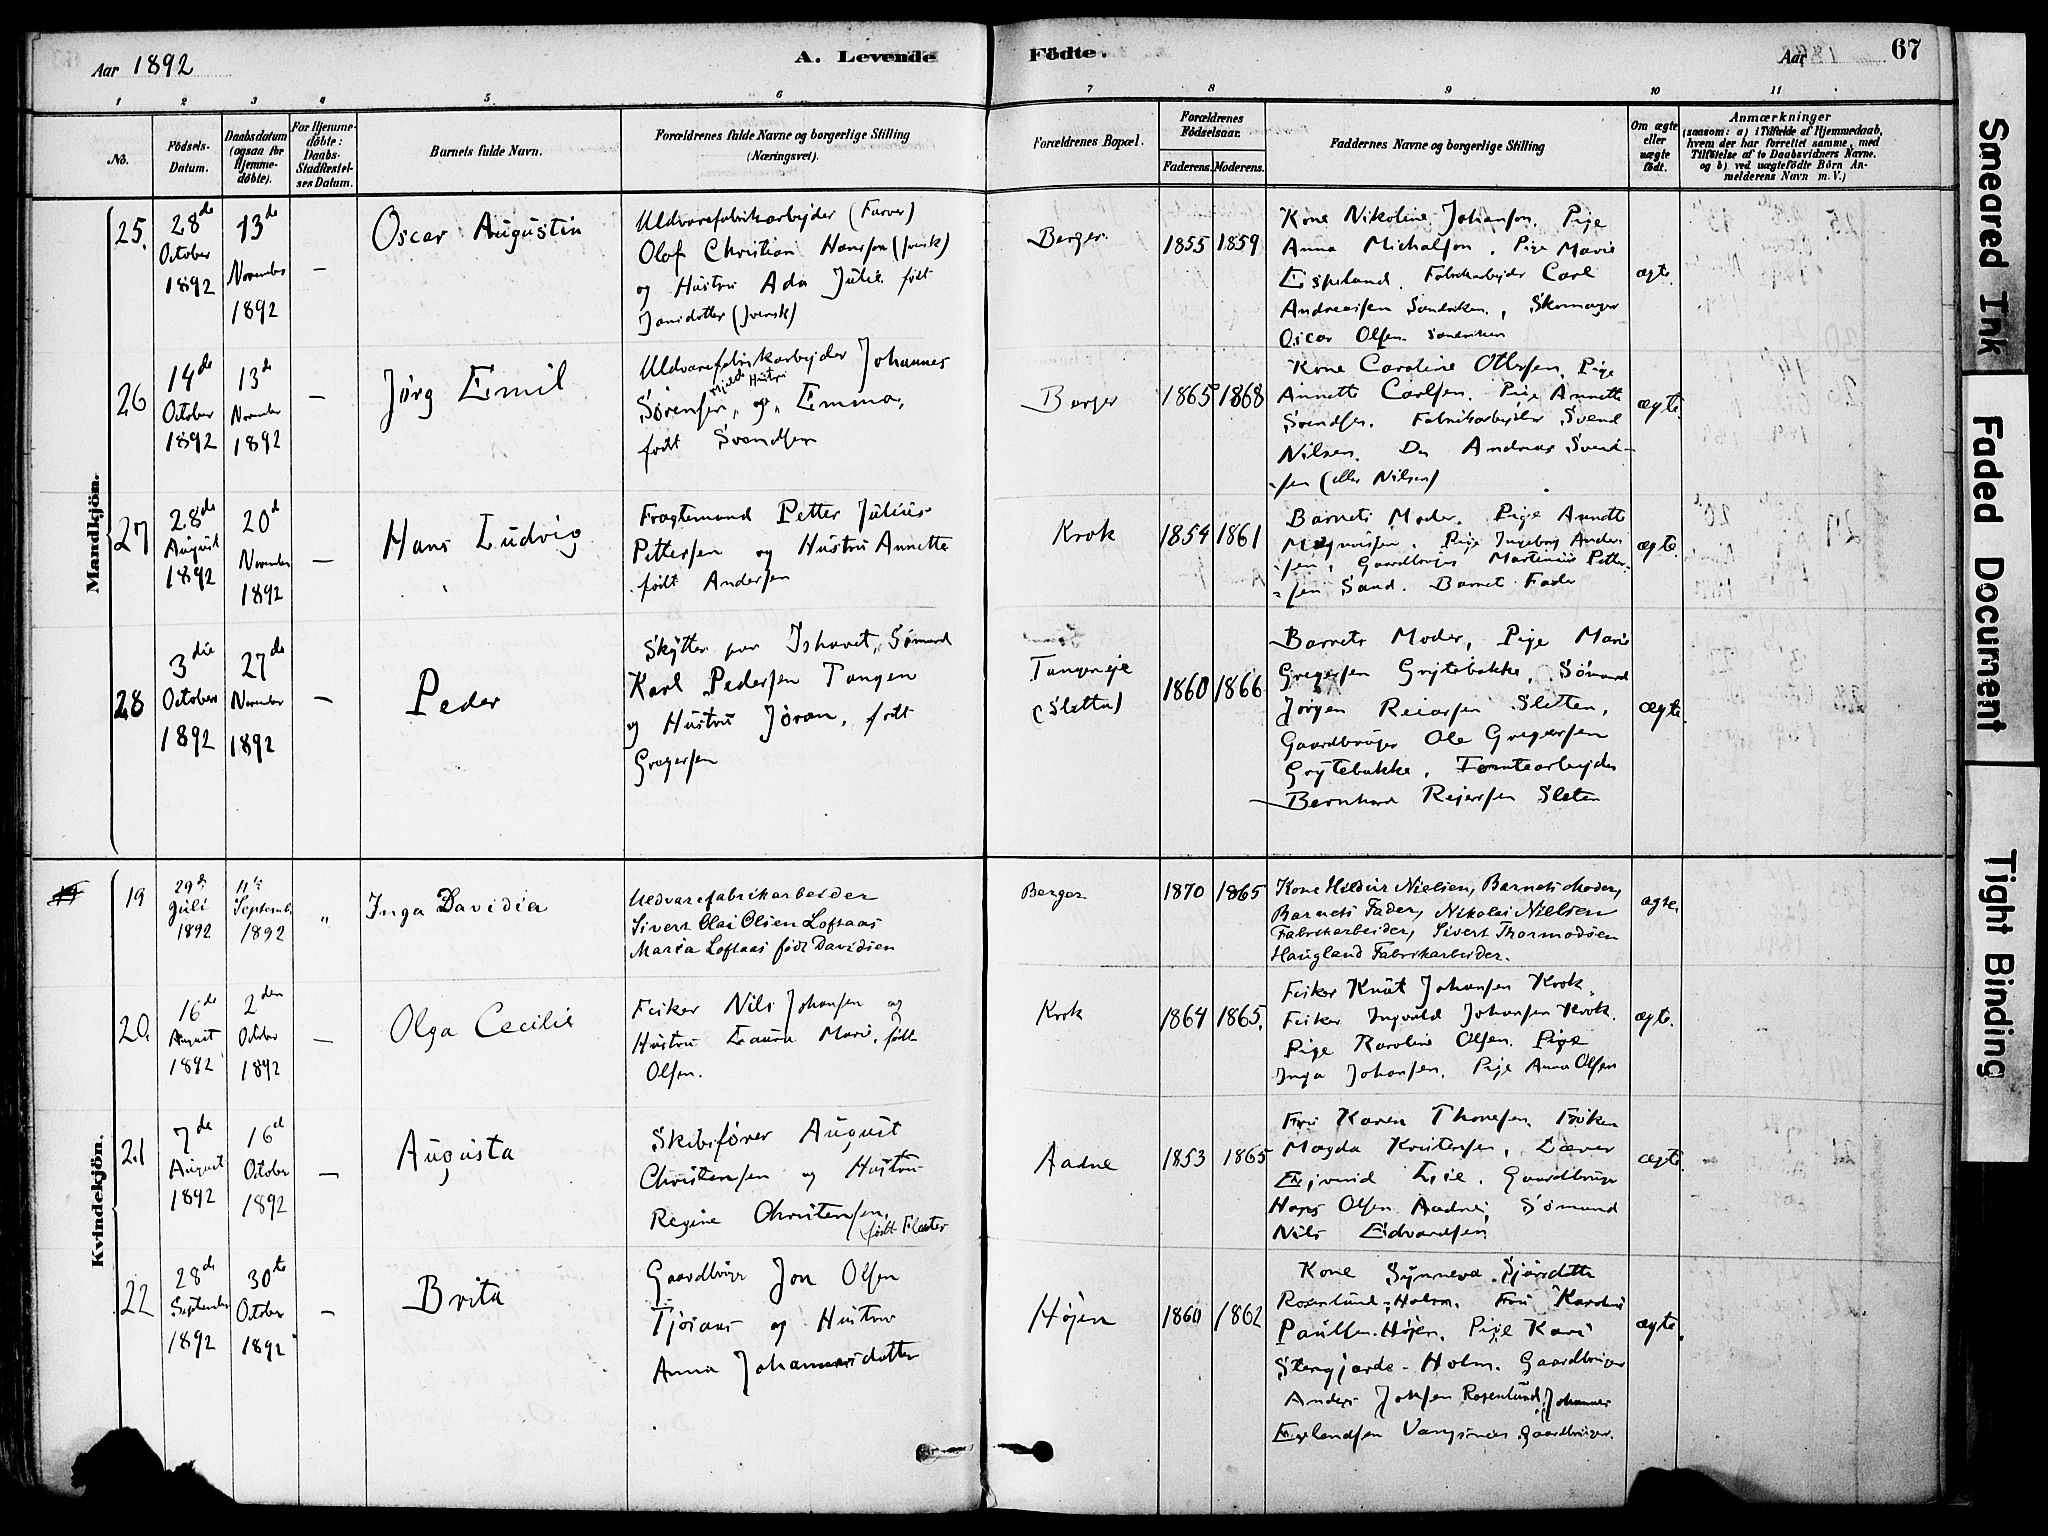 Aar 1892
A. Levende Födte.
Aar
67
1 2 3 4 5 6 7 8 9 10 11
No.
Födsels-
Datum.
Daabsdatum
(ogsaa for
Hjemme-
döbte).
For Hjemme-
döbte:
Daabs-
Stadfæstel-
ses Datum.
Barnets fulde Navn.
Forældrenes fulde Navne og borgerlige Stilling
(Næringsvei).
Forældrenes Bopæl.
Forældrenes
Födselsaar.
Faderens. Moderens.
Faddernes Navne og borgerlige Stilling
Om ægte
eller
uægte
födt.
Anmærkninger
(saasom: a) i Tilfælde af Hjemmedaab,
hvem der har forrettet samme, med
Tilföielse af to Daabsvidners Navne.
og b) ved uægtefödte Börn An-
melderens Navn m. V.)
Mandkjön.
25.
28de
October
1892
13de
November
1892
—
Oscar Augustin
Uldvarefabrikarbejder (Farver)
Olaf Christian Hansson (svensk)
og Hustru Ada Julie født
Jansdotter (svensk)
Berger
1855 1859
Kone Nikoline Johanson. Pige
Anna Michalson. Pige Marie
Espeland. Fabrikarbejder Carl
Andreassen Sandviken, Skomager
Oscar Olsen Sandviken
ægte.
26
14de
October
1892
13de
November
1892
—
Jörg Emil
Uldvarefabrikarbejder Johannes
Sørensen og Hustru Emma,
født Svendsen
Berger
1865 1868
Kone Caroline Olsen. Pige
Annette Carlsen. Pige Annette
Svendsen. Fabrikarbejder Svend
Nilsen. Do Andreas Svend-
sen (eller Nilsen)
ægte.
27
28de
August
1892
20d
November
1892
—
Hans Ludvig
Fragtemand Petter Julius
Pettersen og Hustru Annette
født Andersen
Krok
1854 1861
Barnets Moder. Pige Annette
Magnussen. Pige Ingeborg Ander-
sen, Gaardbruger Martinius Petter-
sen Sand. Barnets Fader
ægte.
28
3die
October
1892
27de
November
1892
—
Peder
Skytter paa Ishavet, Sømand
Karl Pedersen Tangen
og Hustru Jøran, født
Gregersen
Tangeneje
(Sletta)
1860 1866
Barnets Moder, Pige Marie
Gregersen Grytebakke, Sømand
Jörgen Reiersen Sletten,
Gaardbruger Ole Gregersen
Grytebakke, Tomtearbejder
Bernhard Reiersen Sleten
ægte.
Kvindekjön.
19
29de
Juli
1892
11te
Septemb.
1892
"
Inga Davidia
Uldvarefabrikarbeider
Sivert Olai Olsen Loftaas
Maria Loftaas født Davidsen
Berger
1870 1865
Kone Hildur Nielsen, Barnets Moder,
Barnets Fader, Nikolai Nielsen
Fabrikarbeider, Sivert Thormodsen
Haugland Fabrikarbeider.
ægte.
20.
16de
August
1892
2den
October
1892
—
Olga Cecilie
Fisker Nils Johansen og
Hustru Laura Marie, født
Olsen.
Krok
1864 1865.
Fisker Knut Johansen Krok.
Fisker Ingvald Johansen Krok.
Pige Karoline Olsen. Pige
Inga Johansen. Pige Anna Olsen
ægte.
21
7de
August
1892
16d
October
1892
—
Augusta
Skibsfører August
Christensen og Hustru
Regine Christensen,
født Flaater
Aadne
1853 1865
Fru Karen Thonesen. Frøken
Magda Kristensen, Lærer
Ejvind Lie. Gaardbruger
Hans Olsen Aadne, Sømand
Nils Edvardsen
ægte.
22
28de
September
1892
30te
October
1892
—
Brita
Gaardbruger Jon Olsen
Tjøiaas og Hustru
Anna Johannesdatter
Højen
1860 1862
Kone Synneva Sjursdatter
Rosenlund-Holm. Fru Karoline
Paulsen-Højen. Pige Kari
Stengjarde-Holm. Gaardbruger
Anders Johsen Rosenlund, Johannes
Erlendsen Vangsnes Gaardbruger.
ægte.
Smeared Ink
Faded Document
Tight Binding